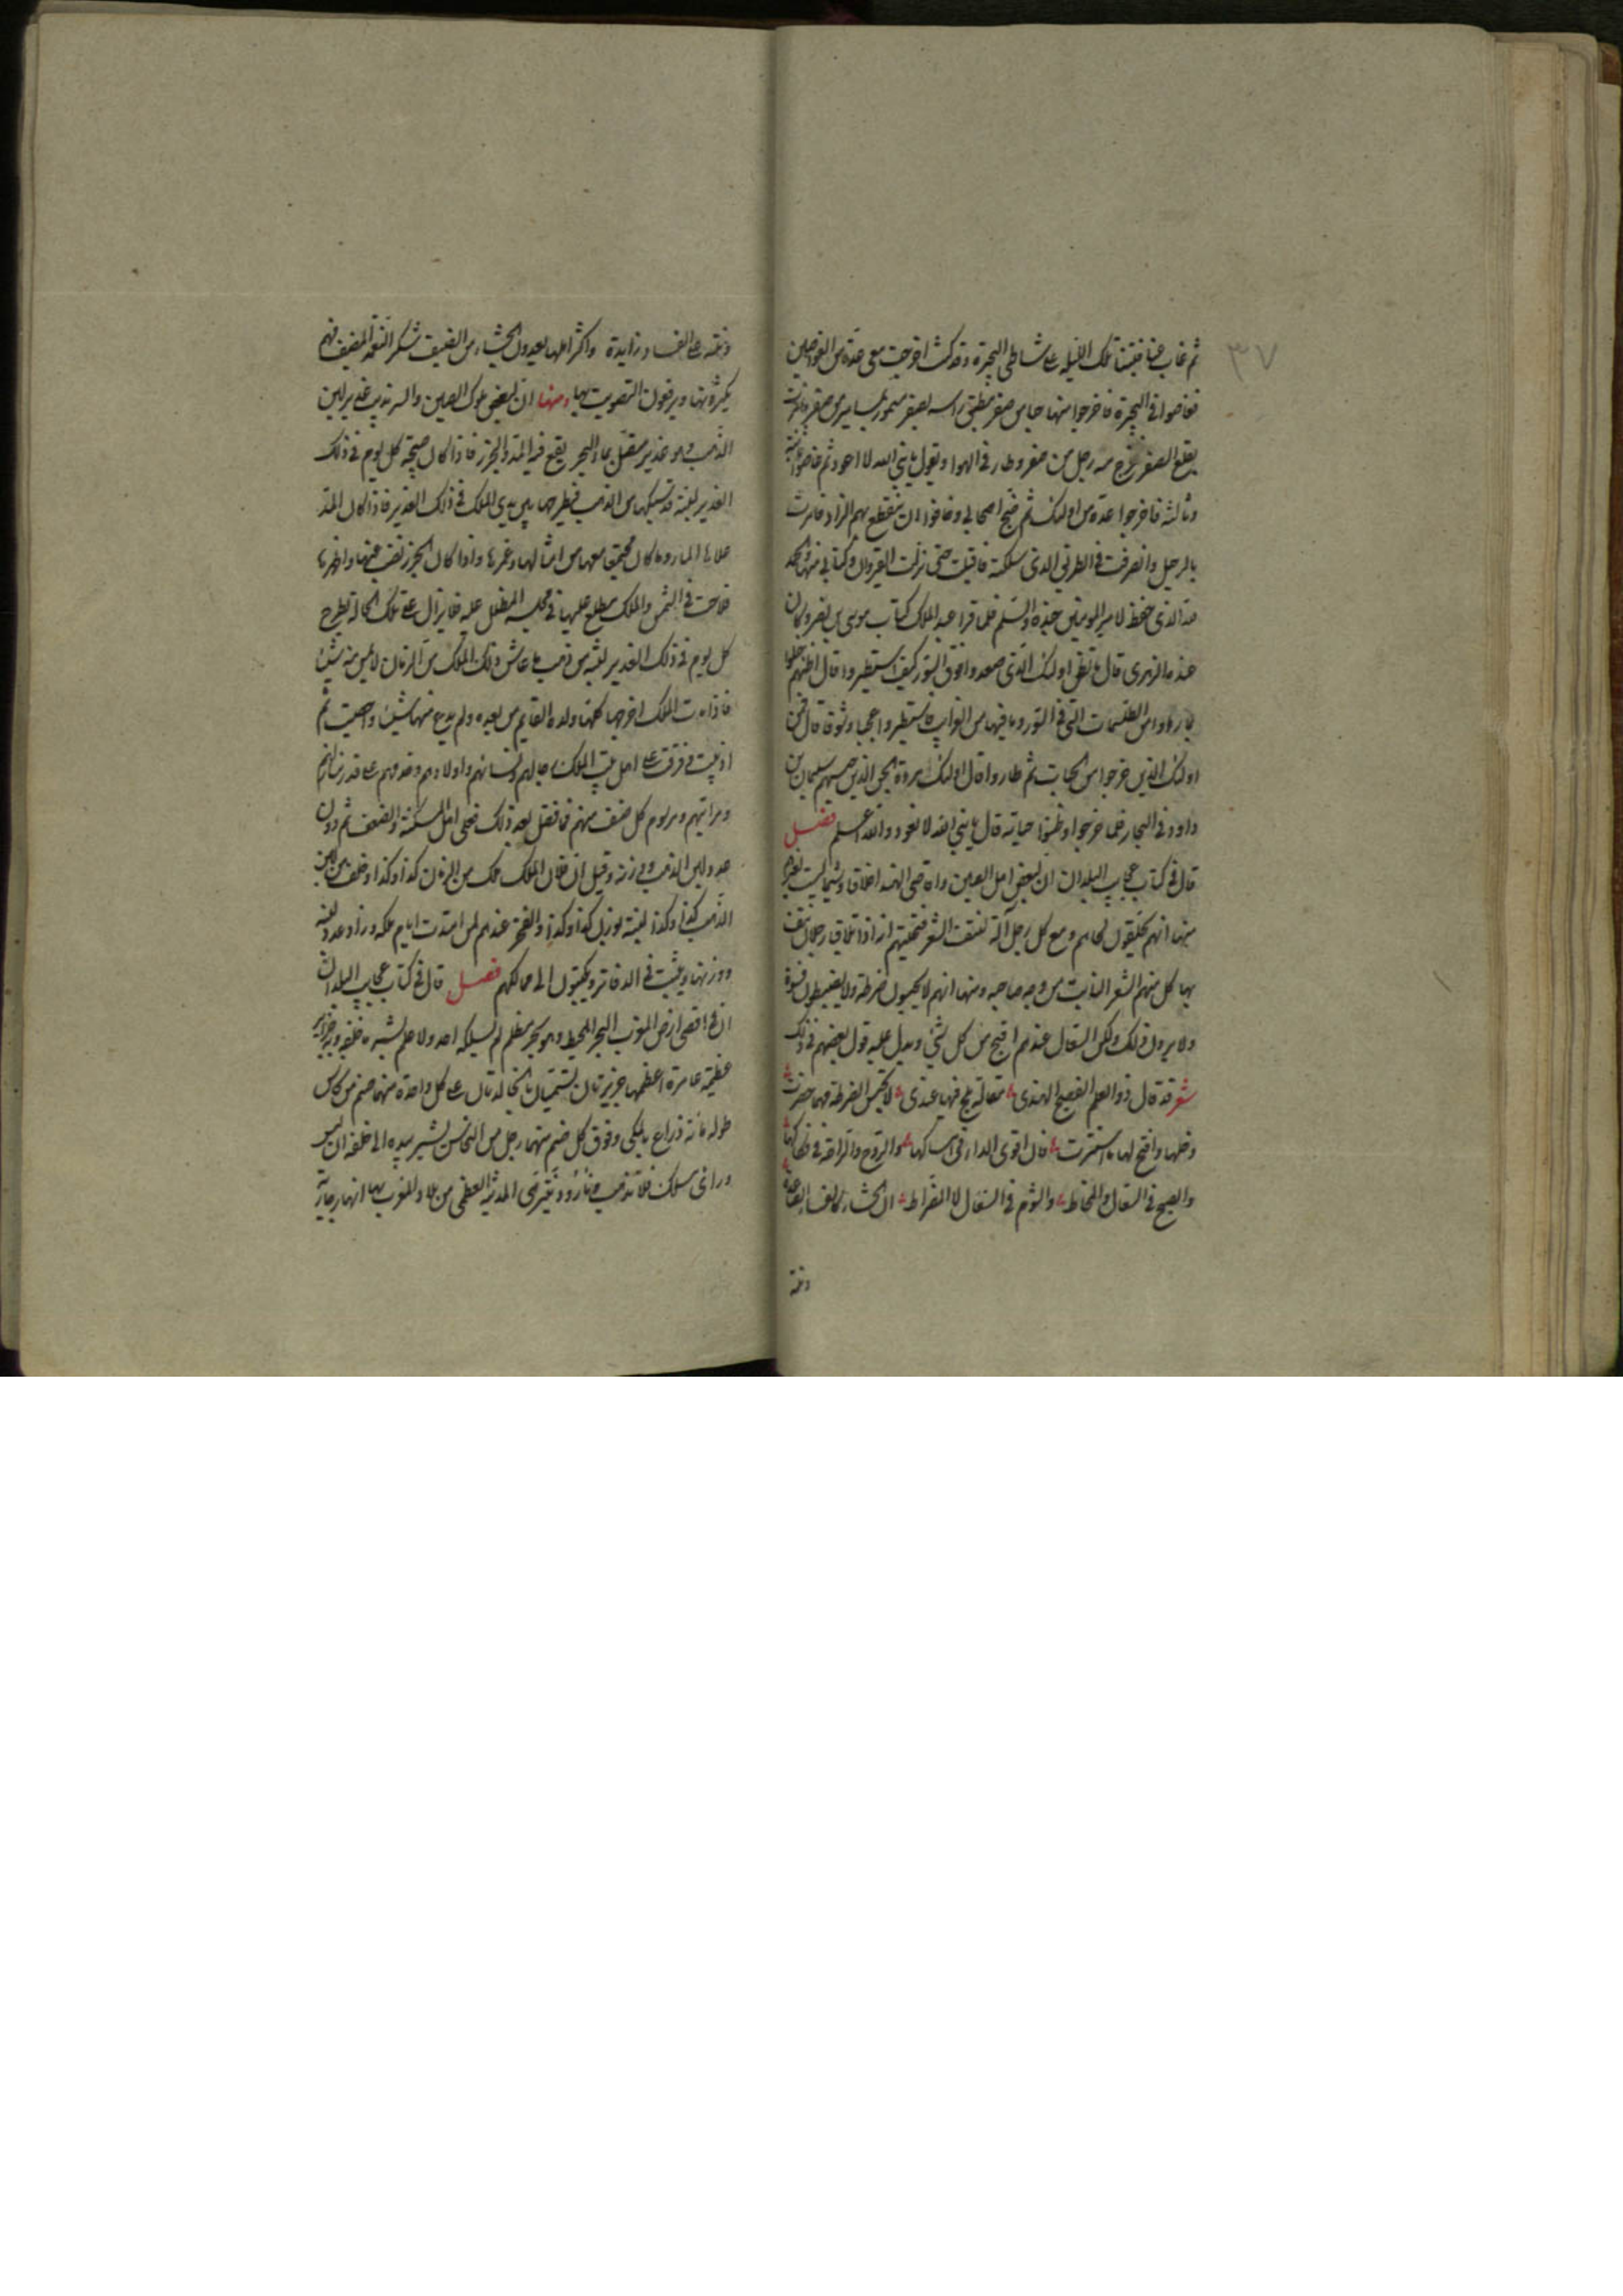 ٣٧
ثم غاب عنا فبتنا تلك الليلة على شاطى البحيرة وقد كنت اخرجت معى عدة من الغواصين
فغاصوا فى البحيرة فاخرجوا منها حبا من صفر مطبق راسه بصفر مسمور بمسامير من صفر فامرت
بقلع الصفر فخرج منه رجل من صفر وطار فى الهوا ويقول يا نبى الله لا اعود ثم غاصوا ثانية
وثالثة فاخرجوا عدة من اولئك ثم ضج اصحابى وخافوا ان ينقطع بهم الزاد فامرت
بالرحيل وانصرفت فى الطريق الذى سلكته فاقبلت حتى نزلت القيروان وكتابى منها والحمد
لله الذى حفظ لامير المومنين جنده والسلم فلما قرا عبد الملك كتاب موسى بن نصر وكان
عنده الزهرى قال ما تظن اولئك الذى صعدوا فوق السور كيف استطيروا قال اظنهم
اولئك الذين خرجوا من الحباب ثم طاروا قال اولئك مردة الجن الذين حبسهم سليمان بن
داود فى البحار فلما خرجوا وظنوا حياته قال يا نبى الله لا نعود والله اعلم فصل
قال فى كتاب عجايب البلدان ان لبعض اهل الصين واقاصى الهند اخلاق وشمايل ليست لغيرهم
منها انهم يحلقون لحاهم ومع كل رجل آلة لنتف الشعر فتحيتهم اذا تلاقيا رجلان نتف
بها كل منهم الشعر النابت من وجه صاحبه ومنها انهم لا يحبسون ضرطة ولا يضبطون فسوة
ولا يرون ذلك ولكن السعال عندهم اقبح من كل شئ ويدل عليه قول بعضهم فى ذلك
شعر قد قال ذو العلم الفصيح الهندى مقالة عندى لا تحبس الضرطة مهما حضرت
وخلها وافتح لها ما استترت فان اقوى الداء فى امساكها والروح والراحة فى فكاكها
والقبح فى السعال والمخاط والشوم فى السعال لا الضراط ان الجشاء
وغمه على الفساد زايدة واكثر اهلها يعدون الجشاء من الضيف شكر النعمة المضيف فهم
يكثرونها ويرفعون التصويت بها ومنها ان لبعض ملوك الصين والسرنديب غدير لبن
الذهب وهو غدير متصل بماء البحر يقع فيه المد والجزر فاذا كان صبيحة كل يوم فى ذلك
الغدير لبنة قد سبكها من الذهب فيطرحها بين يدى الملك فى ذلك الغدير فاذا كان المد
علاها الماء وما كان مجتمعا معها من امثالها وغمرها واذا كان الجزر نضب عنها واظهرها
فلاحت فى الشمس والملك مطلع عليها فى مجلسه المطل عليه فلا يزال على تلك الحالة يطرح
كل يوم فى ذلك الغدير لبنة من ذهب ما عاش ذلك الملك من الزمان لا يمس منه شيئا
فاذا مات الملك اخرجها كلها ولده القايم من بعده ولم يدع منها شيئا واحصيت ثم
اذيبت وفرقت على اهل بيت الملك رجالهم ونسائهم واولادهم وخدمهم على قدر منازلهم
ومراتبهم ورسوم كل صنف منهم فما فضل بعد ذلك فعلى اهل المسكنة والضعف ثم دون
عدد لبن الذهب ووزنه وقيل ان فلان الملك ملك من الزمان كذا وكذا وخلف من لبن
الذهب كذا وكذا لبنة بوزن كذا وكذا والفخر عندهم لمن امتدت ايام ملكه وزاد عدد لبنه
ووزنها ويثبت فى الدفاتر ويكتبون الى ممالكهم فصل قال فى كتاب عجايب البلدان
ان فى اقصى ارض المغرب البحر المحيط وهو بحر مظلم لم يسلكه احد ولا علم بشر ما خلفه وبه جزاير
عظيمة عامرة اعظمها جزيرتان تسميان بالخالدتان على كل واحدة منهما صنم من
طوله مائة ذراع بالملكى وفوق كل صنم منهما رجل من النحاس يشير بيده الى خلفه ان ليس
وراى مسلك فلا تذهب المدينة العظمى من بلاد المغرب بها انهار جارية
وغمه